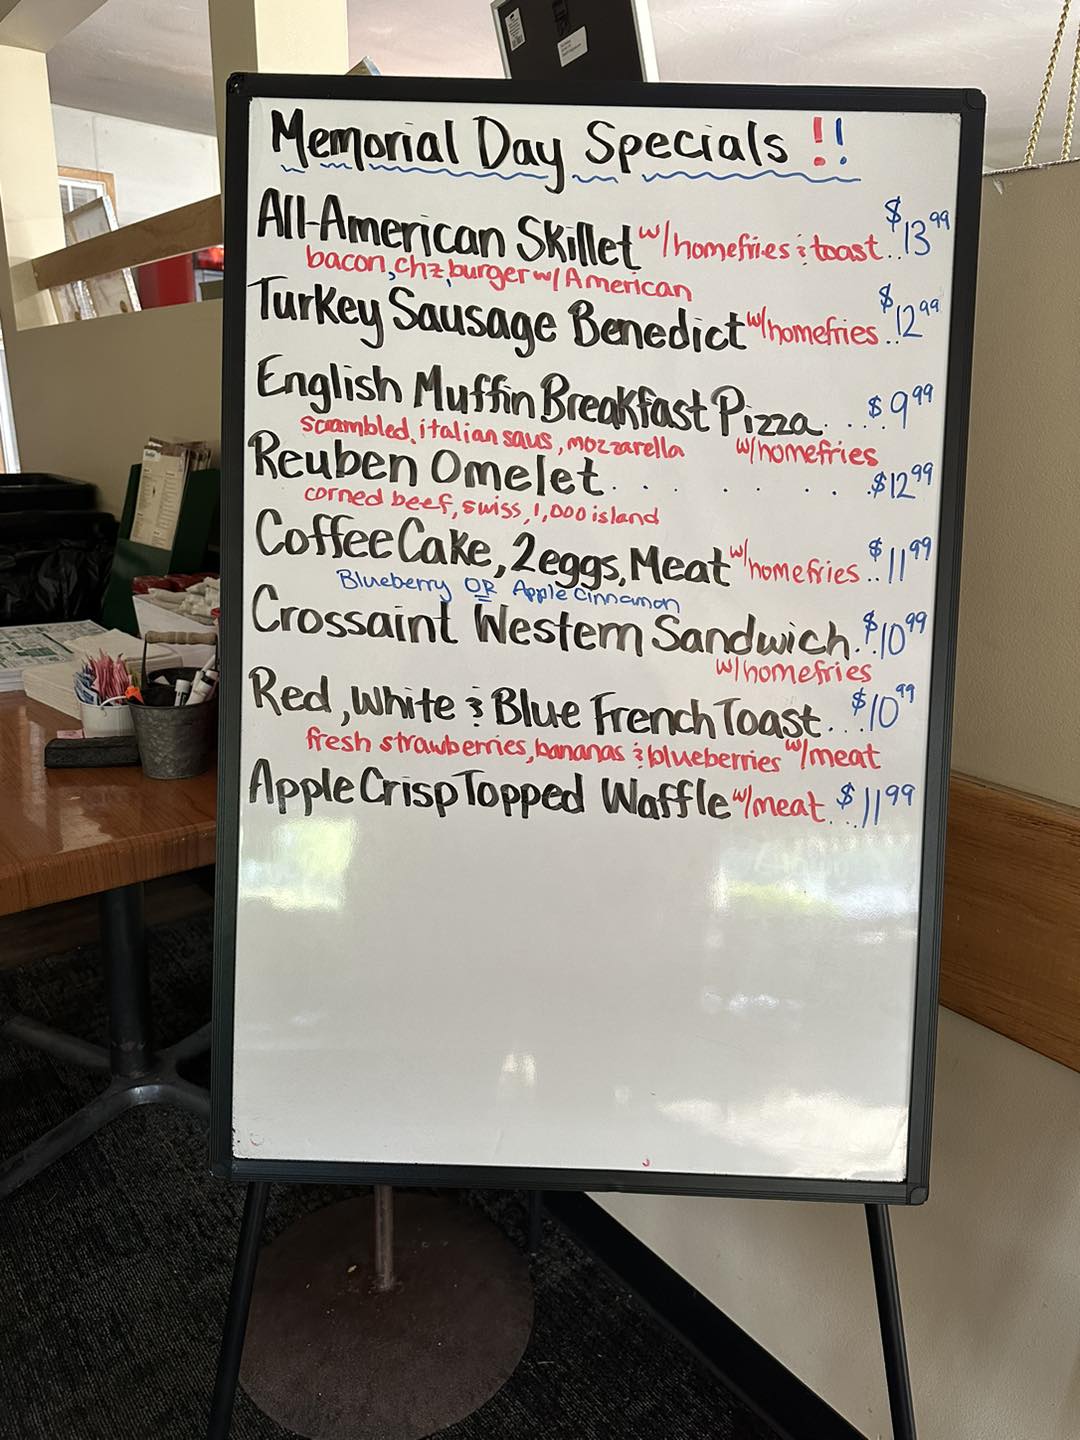 Memorial Day Specials !!
All-American Skillet w/homefries & toast..$13.99
bacon, chz, burger w/ American
Turkey Sausage Benedict w/homefries..$12.99
English Muffin Breakfast Pizza.....$9.99
scrambled, italian saus, mozzarella w/homefries
Reuben Omelet........$12.99
corned beef, swiss, 1,000 island
Coffee Cake, 2eggs, Meat w/homefries..$11.99
Blueberry OR Apple Cinnamon
Crossaint Western Sandwich..$10.99
w/homefries
Red, White & Blue French Toast...$10.99
fresh strawberries, bananas & blueberries w/meat
Apple Crisp Topped Waffle w/meat...$11.99